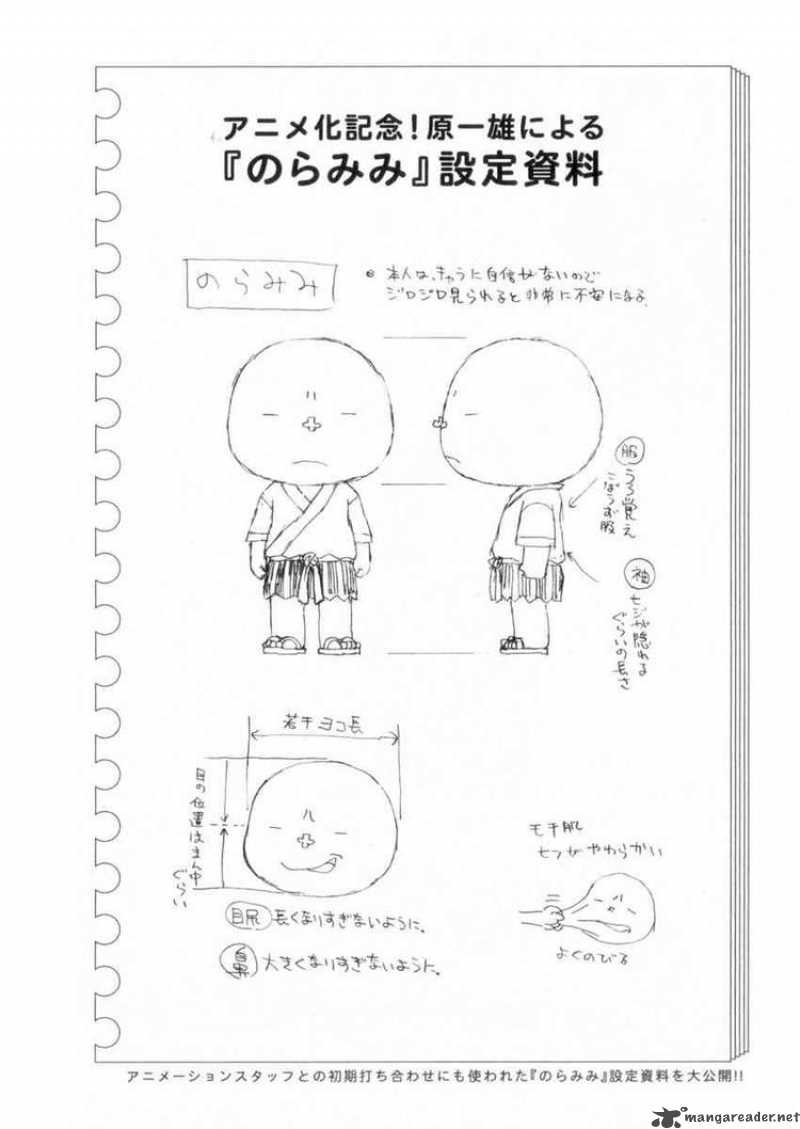 アニメ化記念!原一雄による
『のらみみ』設定資料
のらみみ
本人は、きゅうに自信がないので
ジロジロ見られると非常に不安になる。
服
うろ覚え
こぼうず服
袖
ヒジが隠れる
ぐらいの長さ
若干ヨコ長
目の位置はまん中
ぐらい
モチ肌
やわらかい
よくのびる
目尻 長くなりすぎないように。
鼻 大きくなりすぎないように。
アニメーションスタッフとの初期打ち合わせにも使われた『のらみみ』設定資料を大公開!!
mangareader.net